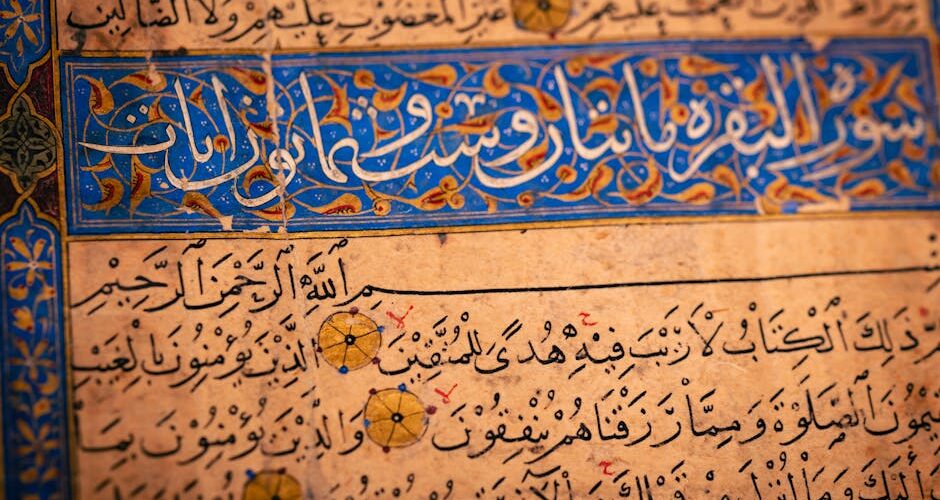 صراط الذين انعمت عليهم غير المغضوب عليهم ولا الضالين
سورة البقرة مائتان وست وثمانون ايات
بِسْمِ اللَّهِ الرَّحْمٰنِ الرَّحِيْمِ
ذٰلِكَ الْكِتَابُ لَا رَيْبَ فِيْهِ هُدًى لِلْمُتَّقِيْنَ الَّذِيْنَ يُؤْمِنُوْنَ بِالْغَيْبِ
يُقِيْمُوْنَ الصَّلٰوةَ وَمِمَّا رَزَقْنَاهُمْ يُنْفِقُوْنَ وَالَّذِيْنَ يُؤْمِنُوْنَ بِمَا